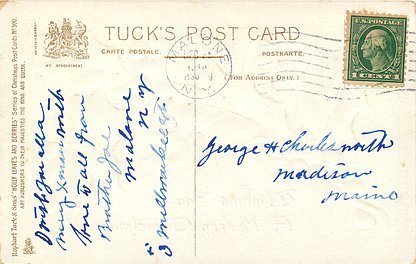 TUCK'S POST CARD
CARTE POSTALE.
POSTKARTE.
BY APPOINTMENT
(FOR ADDRESS ONLY.)
MALONE
N.Y.
U.S. POSTAGE
1 CENT 1
Raphael Tuck & Sons' "HOLLY LEAVES AND BERRIES" Series of Christmas Post Cards Nº 500.
ART PUBLISHERS TO THEIR MAJESTIES THE KING AND QUEEN.
Wish you all a
merry xmas with
love to all from
Brother Joe
Malone
n y
3 Milwaukee st
George H Charlesworth
Madison
Maine